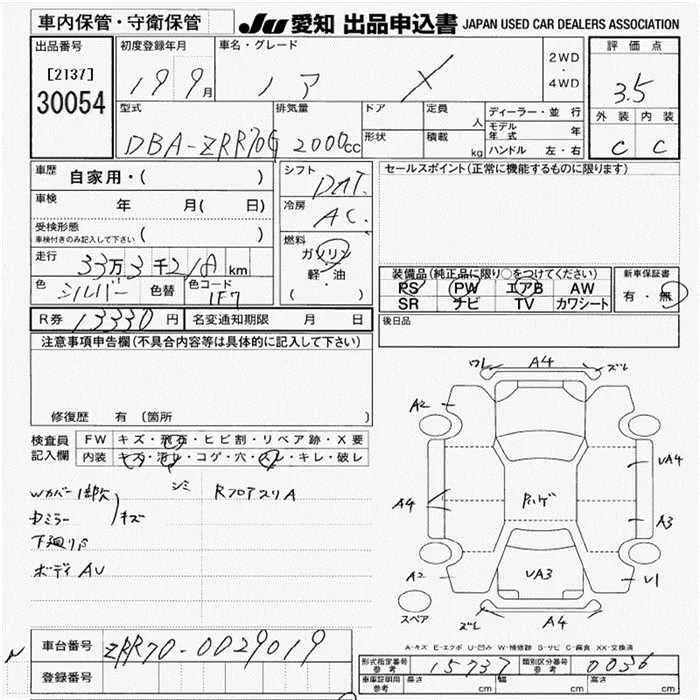 車内保管・守衛保管
JU 愛知 出品申込書 JAPAN USED CAR DEALERS ASSOCIATION
出品番号 [2137] 30054
初度登録年月 19 9月
車名・グレード ノア X
2WD・4WD
評価点 3.5
外装 C 内装 C
型式 DBA-ZRR70G
排気量 2000cc
ドア 形状
定員 人 積載 kg
ディーラー・並行
モデル年式 年
ハンドル 左・右
車歴 自家用・( )
車検 年 月( 日)
受検形態 車検付きのみ記入して下さい ( )
走行 33万3千218km
色 シルバー 色替 色コード 1F7
シフト DAT.
冷房 AC.
燃料 ガソリン・軽・油 ( )
セールスポイント(正常に機能するものに限ります)
装備品(純正品に限り○をつけてください)
PS PW エアB AW
SR ナビ TV カワシート
新車保証書 有・無
後日品
R券 13330円 名変通知期限 月 日
注意事項申告欄(不具合内容等は具体的に記入して下さい)
修復歴 有 (箇所
検査員記入欄
FW キズ・飛石・ヒビ割・リペア跡・X要
内装 キズ・汚レ・コゲ・穴・スレ・キレ・破レ
シミ
Wカバー1部欠
ドミラー キズ
下廻りS
ボディAU
RフロアスリA
ワレ A4 ズレ
A2
UA4
A4
ハゲ
A3
A2
UA3
U1
スペア
ズレ A4
A-キズ E-エクボ U-凹み W-補修跡 S-サビ C-腐食 XX-交換済
車台番号 ZRR70-0029019
登録番号
形式指定番号 参考 15737 類別区分番号 参考 0036
車庫証明用 参考 長さ cm 幅 cm 高さ cm